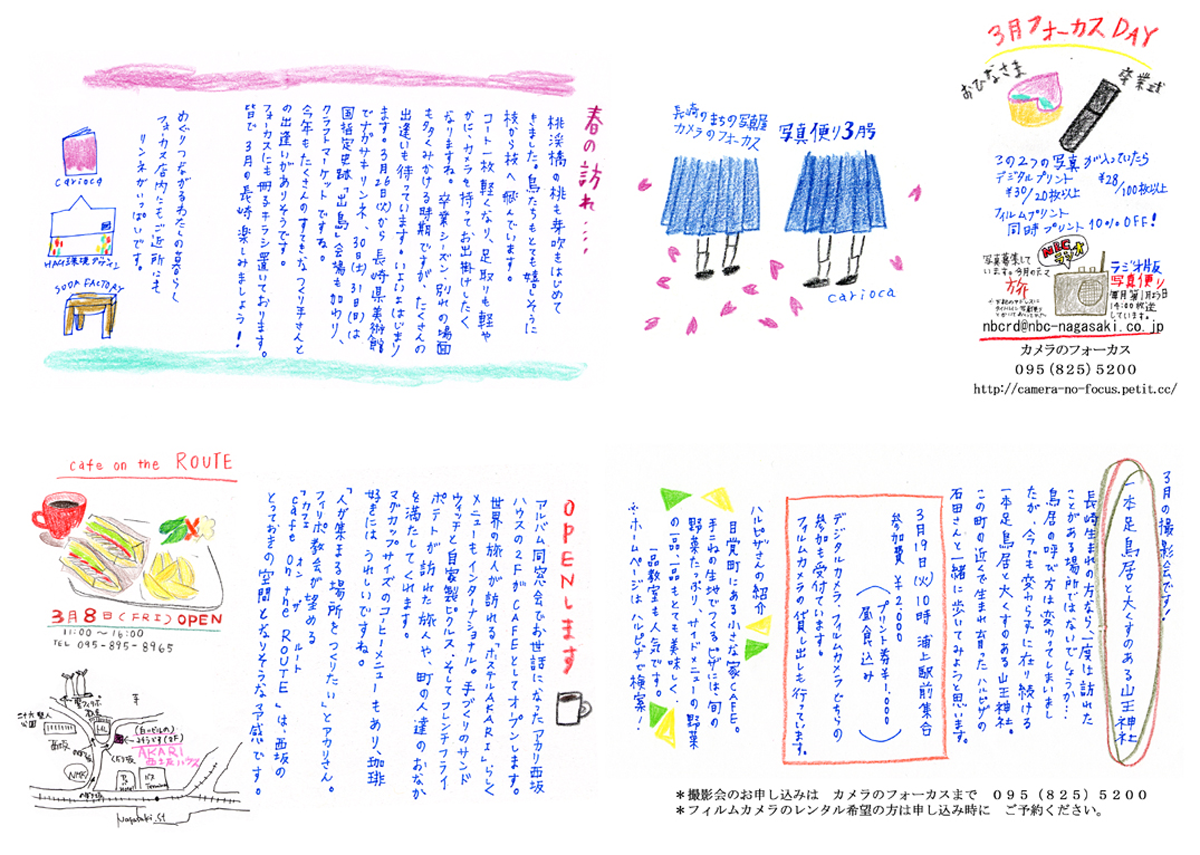 春の訪れ・・・
桃渓橋の桃も芽吹もはじめて
きました。鳥たちもとても嬉しそうに
枝から枝へ飛んでいます。
コート一枚軽くなり、足取りも軽や
かに、カメラを持ってお出掛けしたく
なりますね。卒業シーズン、別れの場面
も多くみかける時期ですが、たくさんの
出逢いも待っています。いよいよはじまり
ます。3月26日(火)から長崎県美術館
でナガサキリンネ、30日(土)31日(日)は
国指定史跡「出島」会場も加わり、
クラフトマーケットですね。
今年もたくさんのすてきなつくり手さんと
の出逢いがありそうです。
フォーカスにも冊子チラシ置いております。
皆で3月の長崎楽しみましょう!
めぐりつながるわたしの暮らし
フォーカス店内にもご近所にも
リンネがいっぱいです。
carioca
HAG環境デザイン
SODA FACTORY
長崎のまちの写真屋
カメラのフォーカス
写真便り3月号
carioca
3月フォーカスDAY
おひなさま
卒業式
この2つの写真が入っていたら
デジタルプリント
¥30/20枚以上
¥28/100枚以上
フィルムプリント
同時プリント10%OFF!
NBCラジオ
写真募集して
います。今月のテーマ
旅
ラジオ版
写真便り
14:00放送
しています。
nbcrd@nbc-nagasaki.co.jp
カメラのフォーカス
095(825)5200
http://camera-no-focus.petit.cc/
cafe on the ROUTE
3月8日(FRI)OPEN
11:00〜16:00
TEL 095-895-8965
二十六聖人
公園
西坂
NHK
AKARI
西坂ハウス
バス
Terminal
Nagasaki.St
OPENします
アルバム同窓会でお世話になったアカリ西坂
ハウスの2FがCAFEとしてオープンします。
世界の旅人が訪れる「ホステルAKARI」らしく
メニューもインターナショナル。手づくりのサンド
ウィッチと自家製ピクルス、そしてフレンチフライ
ポテトが訪れた旅人や、町の人達のおなか
を満たしてくれます。
マグカップサイズのコーヒーメニューもあり、珈琲
好きには、うれしいですね。
「人が集まる場所をつくりたい」とアカリさん。
フィリポ教会が望める
「カフェ オン ザ ルート
cafe on the ROUTE」は、西坂の
とっておきの空間となりそうな予感です。
3月の撮影会です!
一本足鳥居と大くすのある山王神社
長崎生まれの方なら一度は訪れた
ことがある場所ではないでしょうか…
鳥居の呼び方は変わってしまいまし
たが、今でも変わらずに在り続ける
一本足鳥居と大くすのある山王神社。
この町の近くで生まれ育ったハルピザの
石田さんと一緒に歩いてみようと思います。
3月19日(火)10時 浦上駅前集合
参加費 ¥2,000
(プリント券¥1,000
昼食込み)
デジタルカメラ、フィルムカメラどちらの
参加も受付ています。
フィルムカメラの貸し出しも行っています。
ハルピザさんの紹介
目覚町にある小さな家CAFE。
手ごねの生地でつくるピザには、旬の
野菜たっぷり、サイドメニューの野菜
の一品、一品もとても美味しく、
一品教室も人気です。
※ホームページはハルピザで検索!
＊撮影会のお申し込みは カメラのフォーカスまで 095(825)5200
＊フィルムカメラのレンタル希望の方は申し込み時に ご予約ください。